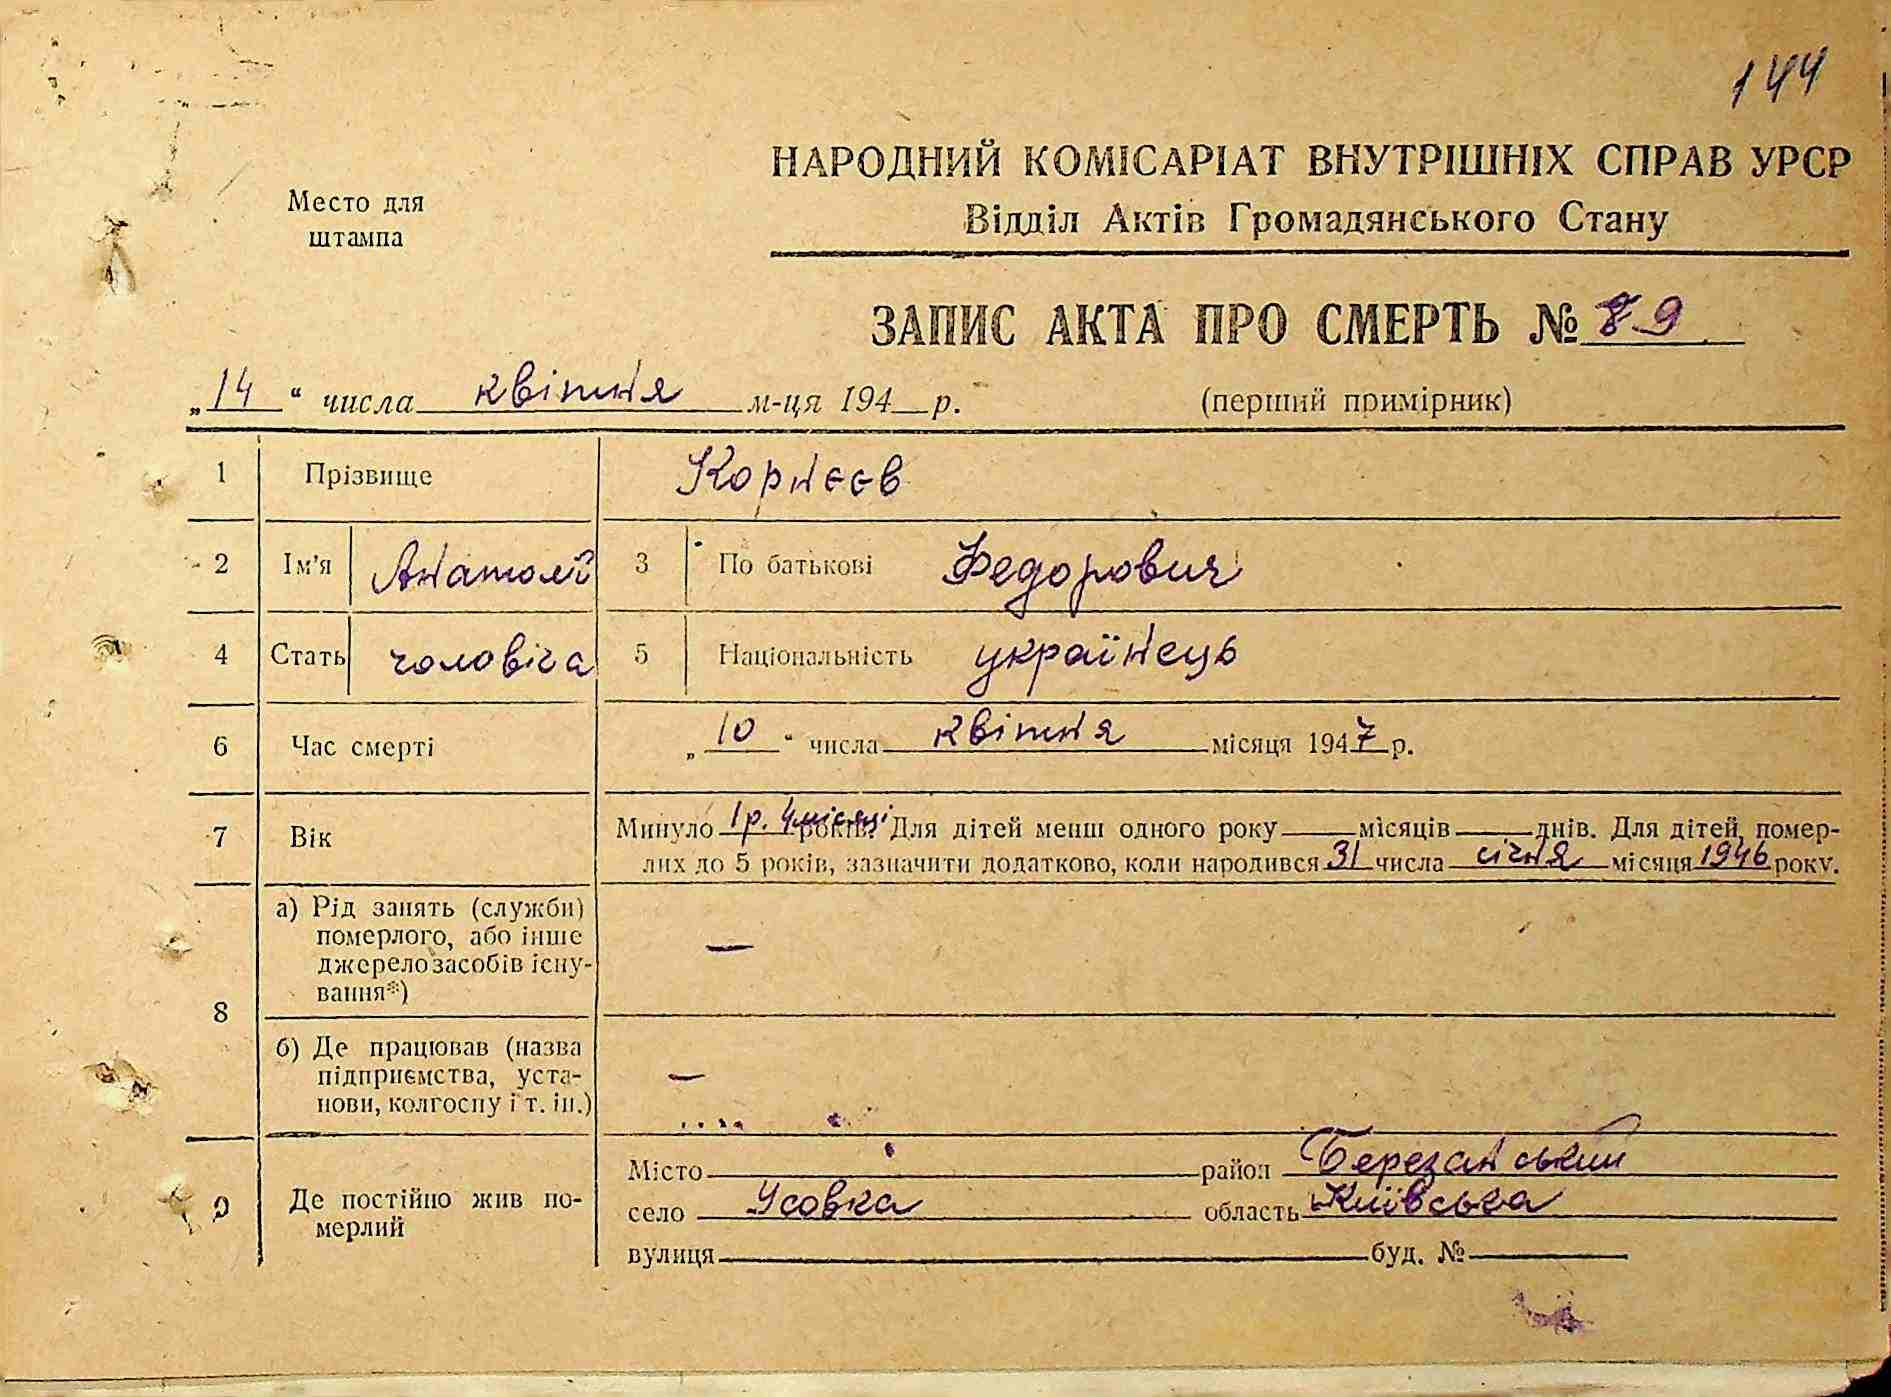 144
НАРОДНИЙ КОМІСАРІАТ ВНУТРІШНІХ СПРАВ УРСР
Место для штампа
Відділ Актів Громадянського Стану
ЗАПИС АКТА ПРО СМЕРТЬ № 89
„14“ числа квітня м-ця 194 р. (перший примірник)
1 Прізвище Корнєєв
2 Ім’я Анатолій 3 По батькові Федорович
4 Стать чоловіча 5 Національність українець
6 Час смерті „10“ числа квітня місяця 1947 р.
7 Вік Минуло 1 р. 4 місяці років. Для дітей менш одного року місяців днів. Для дітей, помер-
лих до 5 років, зазначити додатково, коли народився 31 числа січня місяця 1946 року.
8 а) Рід занять (служби)
померлого, або інше
джерело засобів існу-
вання*) —
б) Де працював (назва
підприємства, уста-
нови, колгоспу і т. ін.) —
9 Де постійно жив по-
мерлий
Місто район Березанський
село Усовка область Київська
вулиця буд. №